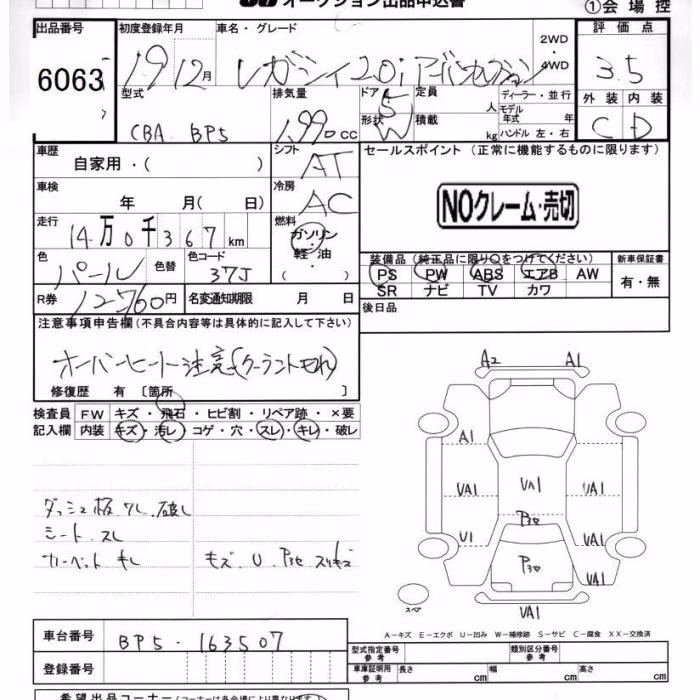 オークション出品申込書
①会場控
出品番号 初度登録年月 車名・グレード 2WD・4WD 評価点
6063 19 12月 レガシィ2.0i 3.5
型式 排気量 ドア 5 定員 人 ディーラー・並行 外装 内装
CBA BP5 1,990 cc 形状 W 積載 kg モデル年式 年 ハンドル 左・右 C D
車歴 シフト セールスポイント (正常に機能するものに限ります)
自家用・( ) AT
車検 冷房
年 月( 日) AC NOクレーム・売切
走行 燃料
14万0千367km ガソリン・軽油・( )
色 色替 色コード 装備品 (純正品に限り○をつけてください) 新車保証書
パール 37J PS PW ABS エアB AW 有・無
R券 12760円 名変通知期限 月 日 SR ナビ TV カワ
注意事項申告欄(不具合内容等は具体的に記入して下さい) 後日品
オーバーヒート注意(クーラントもれ)
修復歴 有 〔箇所 〕
検査員 FW キズ・飛石・ヒビ割・リペア跡・×要
記入欄 内装 キズ・汚レ・コゲ・穴・スレ・キレ・破レ
A2 A1
A1
VA1 VA1 VA1
U1 P3セ VA1
P3セ VA1
VA1
スペア
ダッシュ板
シート スレ
カーペット キレ キズ.U.P3セ スリキズ
A-キズ E-エクボ U-凹み W-補修跡 S-サビ C-腐食 XX-交換済
車台番号 BP5-163507
登録番号
型式指定番号 参考 類別区分番号 参考
車庫証明用 参考 長さ cm 幅 cm 高さ cm
希望出品コーナー